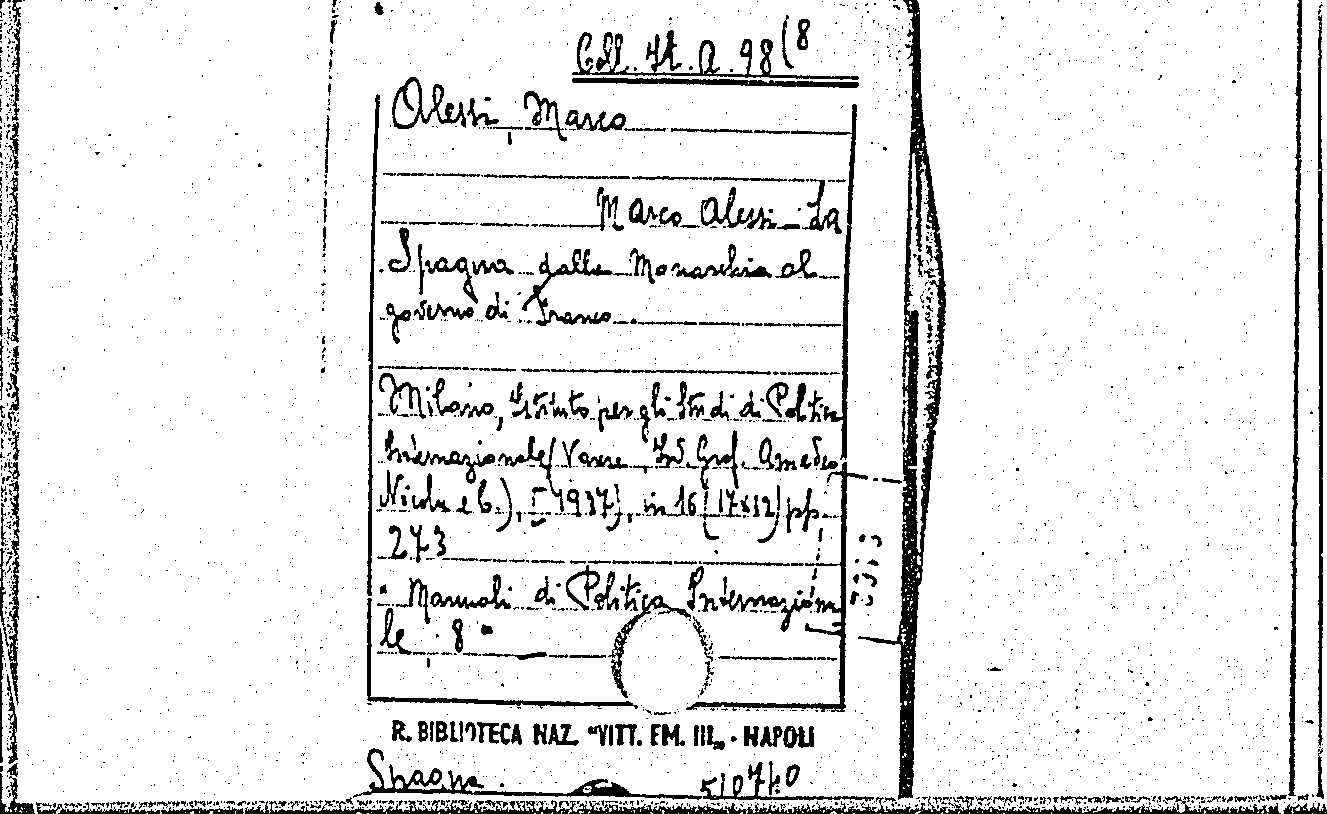 Coll. It. A. 98(8
Alessi, Marco
Marco Alessi - La
Spagna dalla Monarchia al
governo di Franco.
Milano, Istituto per gli Studi di Politica
Internazionale (Varese, Ind. Graf. Amedeo
Nicola e C.), [1937], in 16 (17x12) pp.
273
"Manuali di Politica Internaziona
le, 8"
R. BIBLIOTECA NAZ. "VITT. EM. III„ - NAPOLI
Spagna. 510740